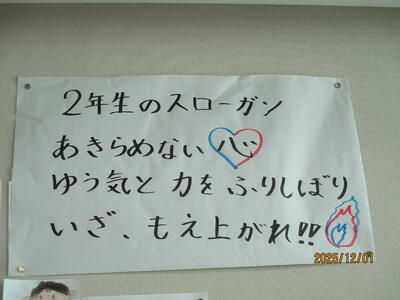 2年生のスローガン
あきらめない心
ゆう気と力をふりしぼり
いざ、もえ上がれ!!
2025/12/01